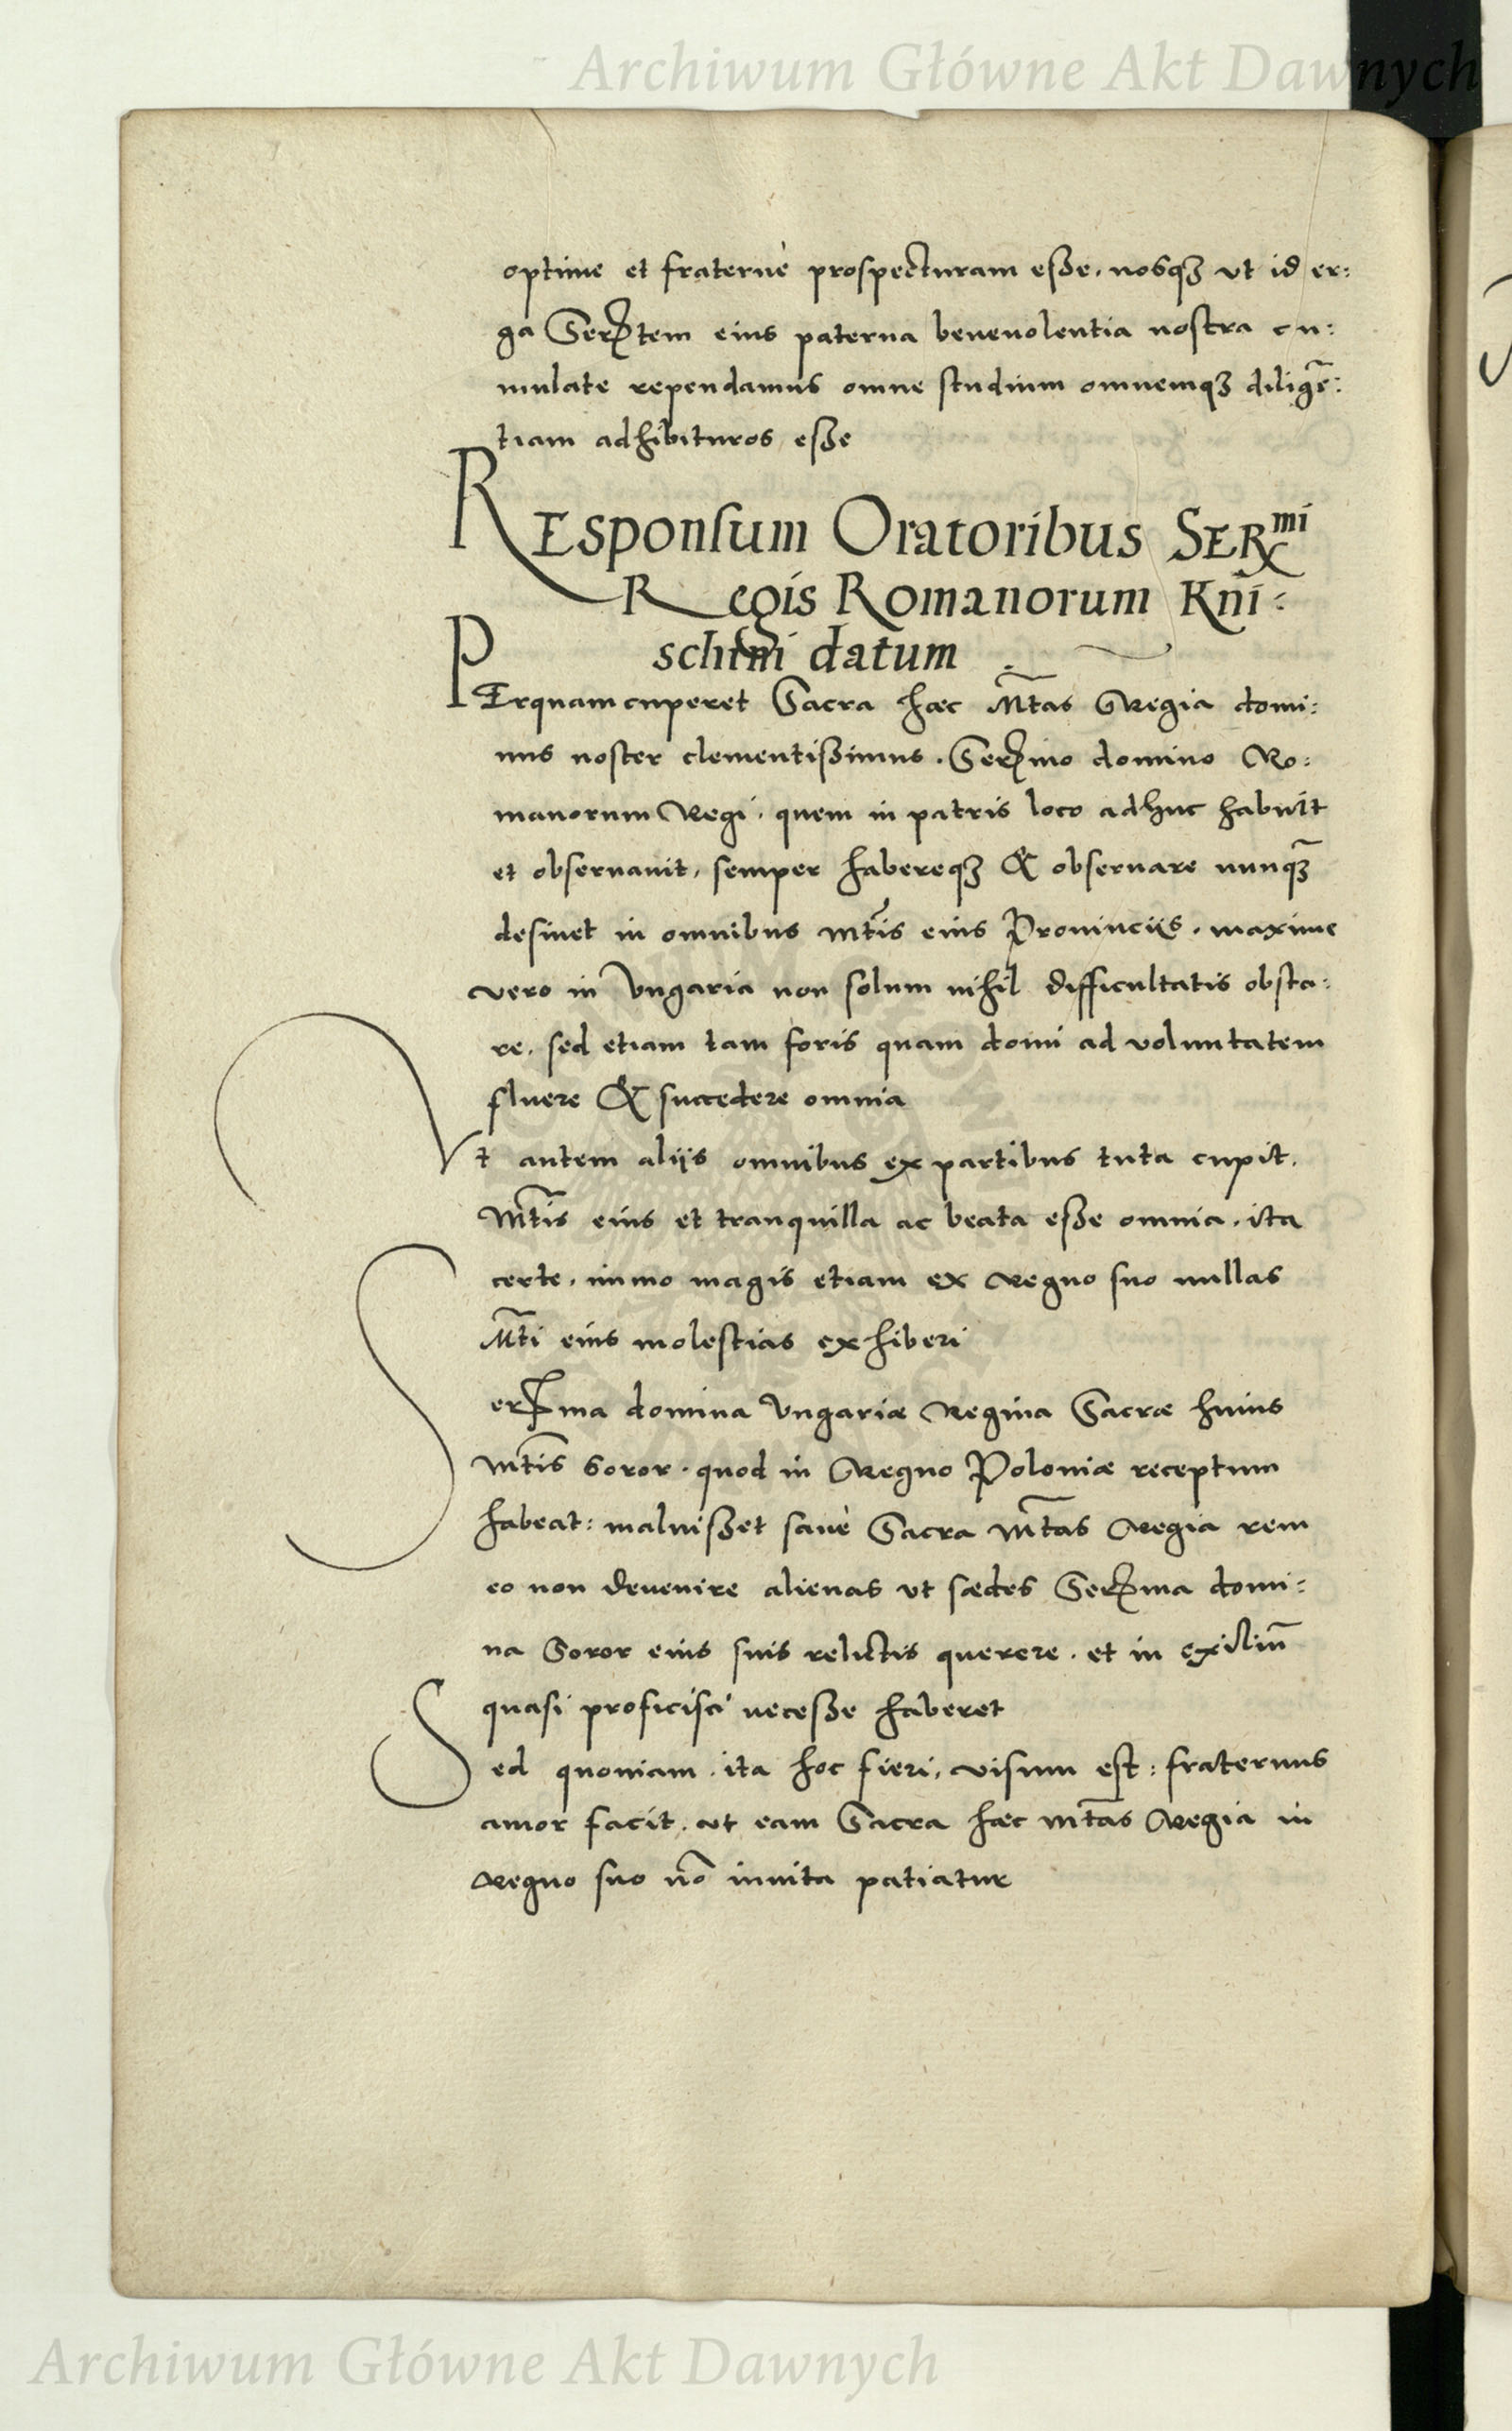 Archiwum Główne Akt Dawnych
optime et fraternè prospecturam esse, nosqꝫ vt id er:
ga Serꝫtem eius paterna beneuolentia nostra cu:
mulate rependamus omne studium omnemqꝫ diligẽ:
tiam adhibituros esse
REsponsum Oratoribus SERmi
Regis Romanorum Kni:
schini datum
PErquam cuperet Sacra hæc Mt̃as Regia domi:
nus noster clementissimus. Serꝫmo domino Ro:
manorum Regi, quem in patris loco adhuc habuit
et obseruauit, semper habereqꝫ & obseruare nunqꝫ̃
desinet in omnibus Mt̃is eius Prouinciis, maxime
vero in Vngaria non solum nihil difficultatis obsta:
re, sed etiam tam foris quam domi ad voluntatem
fluere & succedere omnia
Vt autem aliis omnibus ex partibus tuta cupit,
Mt̃is eius et tranquilla ac beata esse omnia, ita
certe, immo magis etiam ex Regno suo nullas
Mt̃i eius molestias exhiberi
Serꝫma domina Vngariæ Regina Sacræ huius
Mt̃is Soror, quod in Regno Poloniæ receptum
habeat: maluisset sanè Sacra Mt̃as Regia rem
eo non deuenire alienas vt sædes Serꝫma domi:
na Soror eius suis relictis querere, et in exiliũ
quasi proficisci necesse haberet
Sed quoniam ita hoc fieri, visum est: fraternus
amor facit, vt eam Sacra hæc Mt̃as Regia in
Regno suo nõ inuita patiatur
Archiwum Główne Akt Dawnych